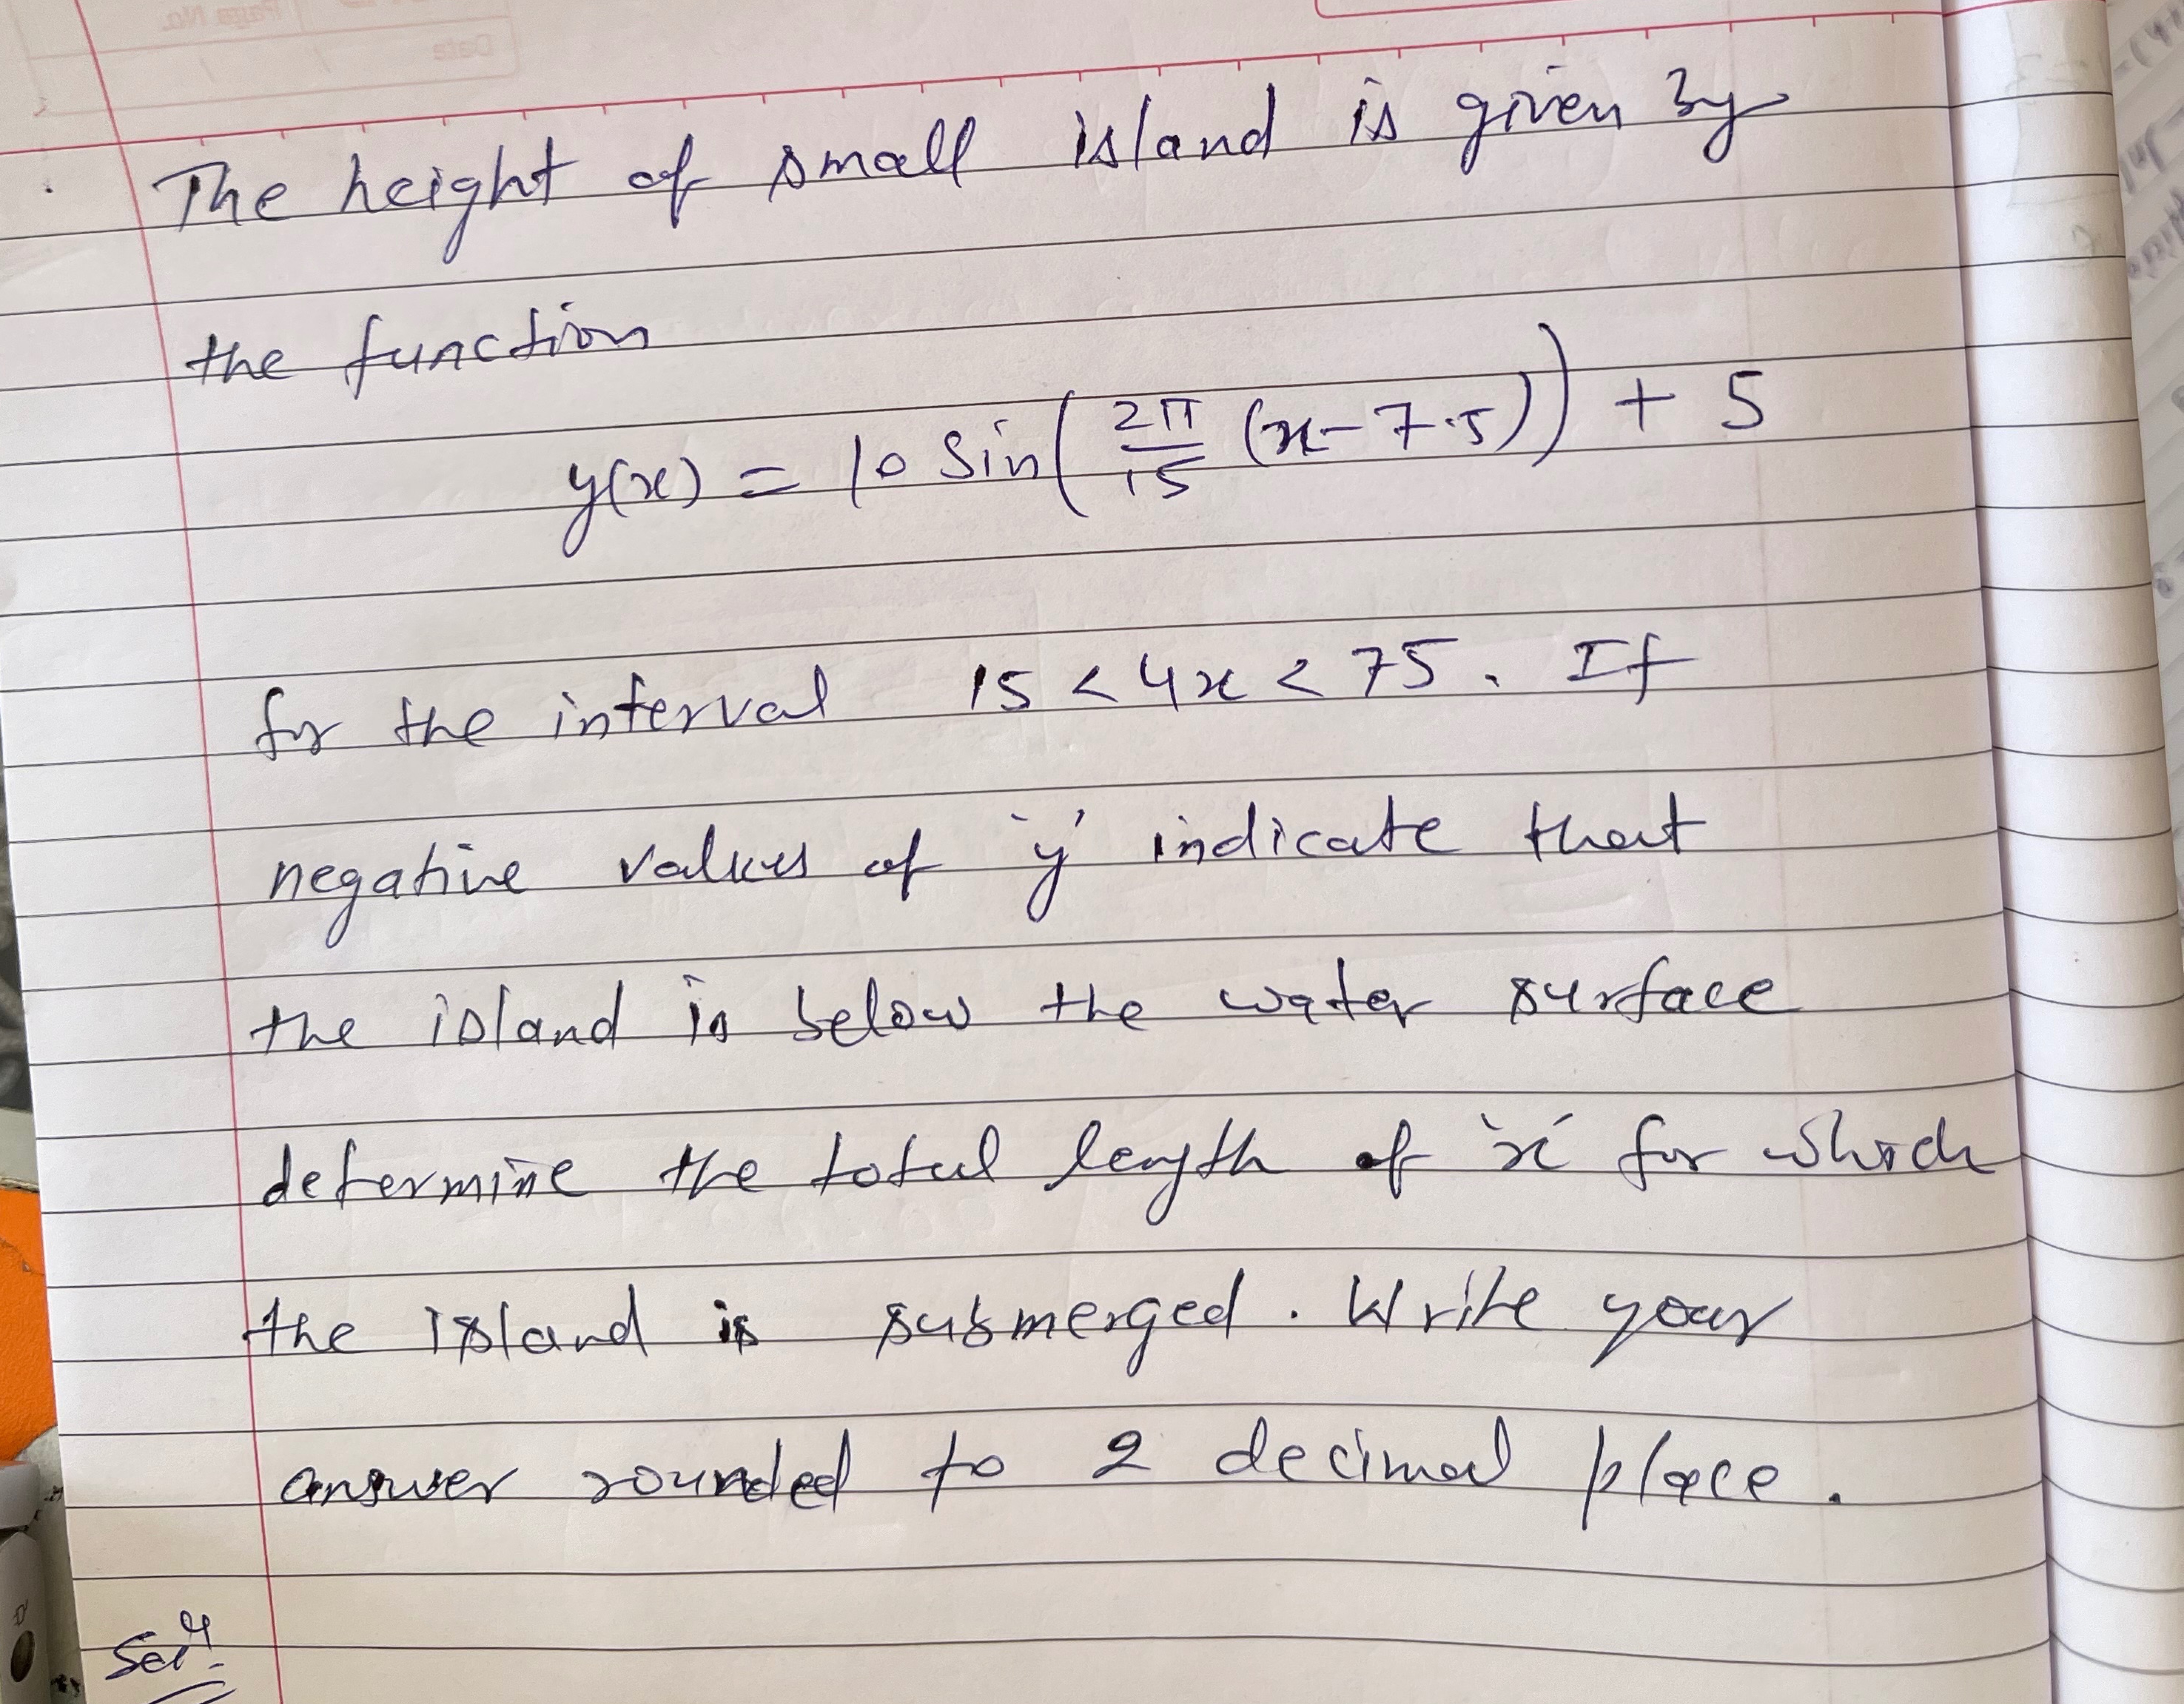 The height of small island is given by
the function
y(x) = 10 Sin(2π/15 (x-7.5)) + 5
for the interval 15 < 4x < 75. If
negative values of 'y' indicate that
the island is below the water surface
determine the total length of 'x' for which
the island is submerged. Write your
answer rounded to 2 decimal place.
Solⁿ.